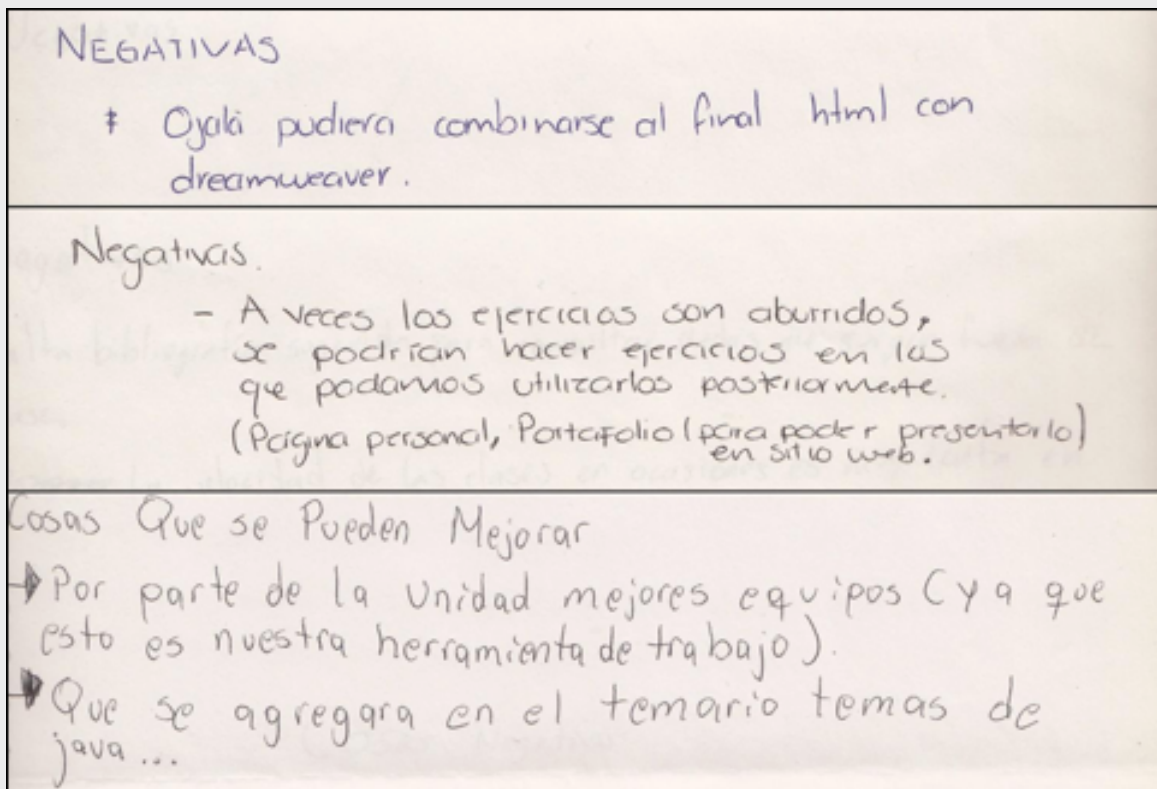 NEGATIVAS
* Ojalá pudiera combinarse al final html con
dreamweaver.
Negativas.
- A veces los ejercicios son aburridos,
se podrían hacer ejercicios en las
que podamos utilizarlos posteriormente.
(Página personal, Portafolio (para poder presentarlo)
en sitio web.
Cosas Que se Pueden Mejorar
→ Por parte de la Unidad mejores equipos (ya que
esto es nuestra herramienta de trabajo).
→ Que se agregara en el temario temas de
java...